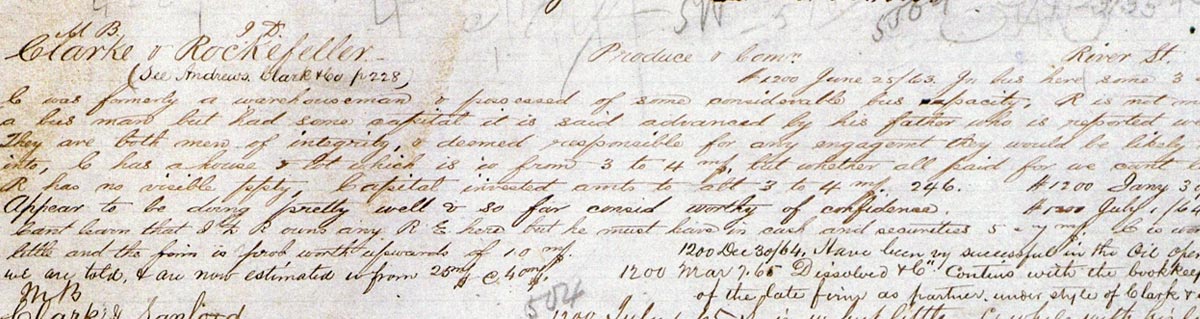 M B. J. D.
Clarke & Rockefeller. Produce & Comn. River St.
(See Andrews, Clark & Co p 228) #1200 June 25/63. In bus here some 3
C was formerly a warehouseman & possessed of some considerable bus capacity, R is not m
a bus man but had some capital it is said advanced by his father who is reported w
They are both men of integrity, & deemed responsible for any engagemt they would be likely
into, C has a house & lot which is wo from 3 to 4 m$, but whether all paid for we cant
R has no visible ppty, Capital invested amts to abt 3 to 4 m$. 246. #1200 Jany 3
Appear to be doing pretty well & so far consid worthy of confidence. #1200 July 1/6
cant learn that J D R owns any R E here but he must have in cash and securities 5 m$. C is wo
little and the firm is prob worth upwards of 10 m$. 1200 Dec 30/64. Have been vy successful in the Oil oper
we are told, & are now estimated wo from 25m$ @ 40m$, 1200 Mar 7.65 Dissolved & "C" Contins with the bookkee
504 of the late firm as partner under style of Clark &
M B
Clark & Sanford 1200 July